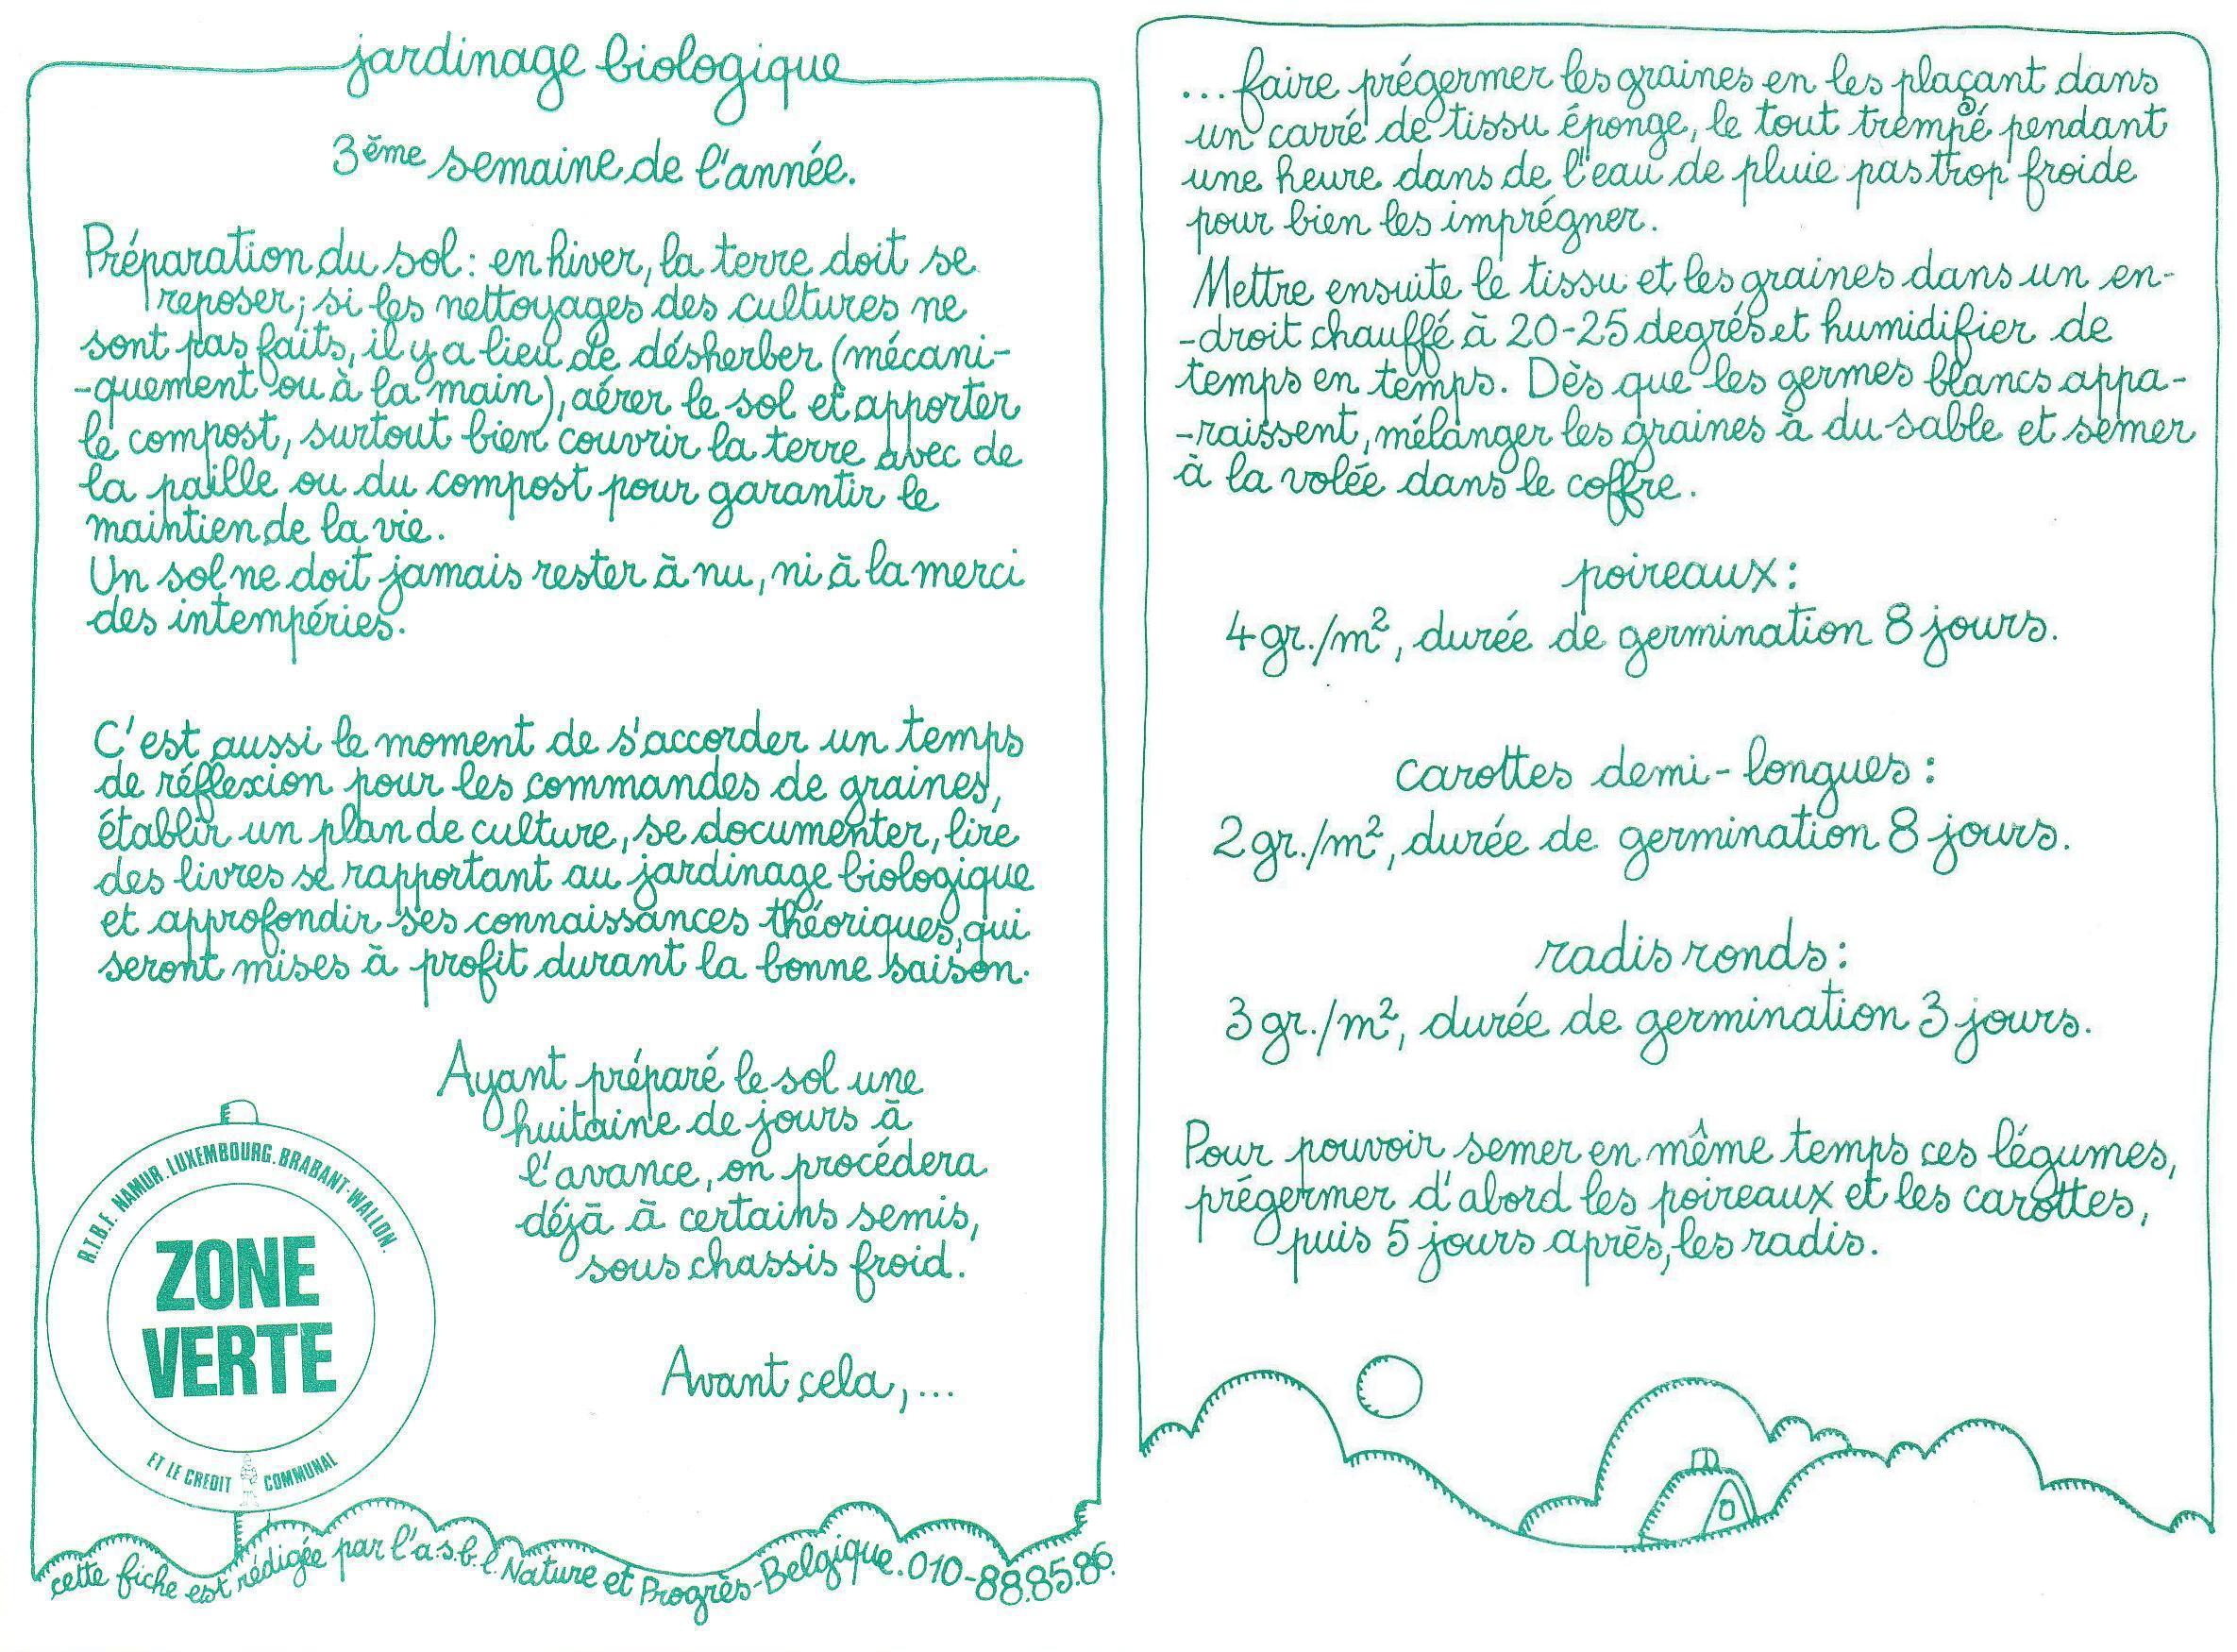 jardinage biologique
3ème semaine de l'année.
Préparation du sol : en hiver, la terre doit se
reposer ; si les nettoyages des cultures ne
sont pas faits, il y a lieu de désherber (mécani-
-quement ou à la main), aérer le sol et apporter
le compost, surtout bien couvrir la terre avec de
la paille ou du compost pour garantir le
maintien de la vie.
Un sol ne doit jamais rester à nu, ni à la merci
des intempéries.
C'est aussi le moment de s'accorder un temps
de réflexion pour les commandes de graines,
établir un plan de culture, se documenter, lire
des livres se rapportant au jardinage biologique
et approfondir ses connaissances théoriques, qui
seront mises à profit durant la bonne saison.
Ayant préparé le sol une
huitaine de jours à
l'avance, on procédera
déjà à certains semis,
sous chassis froid.
Avant cela, ...
R.T.B.F. NAMUR. LUXEMBOURG. BRABANT-WALLON.
ZONE
VERTE
ET LE CREDIT COMMUNAL
cette fiche est rédigée par l'a.s.b.l. Nature et Progrès-Belgique. 010-88.85.86.
... faire prégermer les graines en les plaçant dans
un carré de tissu éponge, le tout trempé pendant
une heure dans de l'eau de pluie pas trop froide
pour bien les imprégner.
Mettre ensuite le tissu et les graines dans un en-
-droit chauffé à 20-25 degrés et humidifier de
temps en temps. Dès que les germes blancs appa-
-raissent, mélanger les graines à du sable et semer
à la volée dans le coffre.
poireaux :
4 gr./m², durée de germination 8 jours.
carottes demi-longues :
2 gr./m², durée de germination 8 jours.
radis ronds :
3 gr./m², durée de germination 3 jours.
Pour pouvoir semer en même temps ces légumes,
prégermer d'abord les poireaux et les carottes,
puis 5 jours après, les radis.